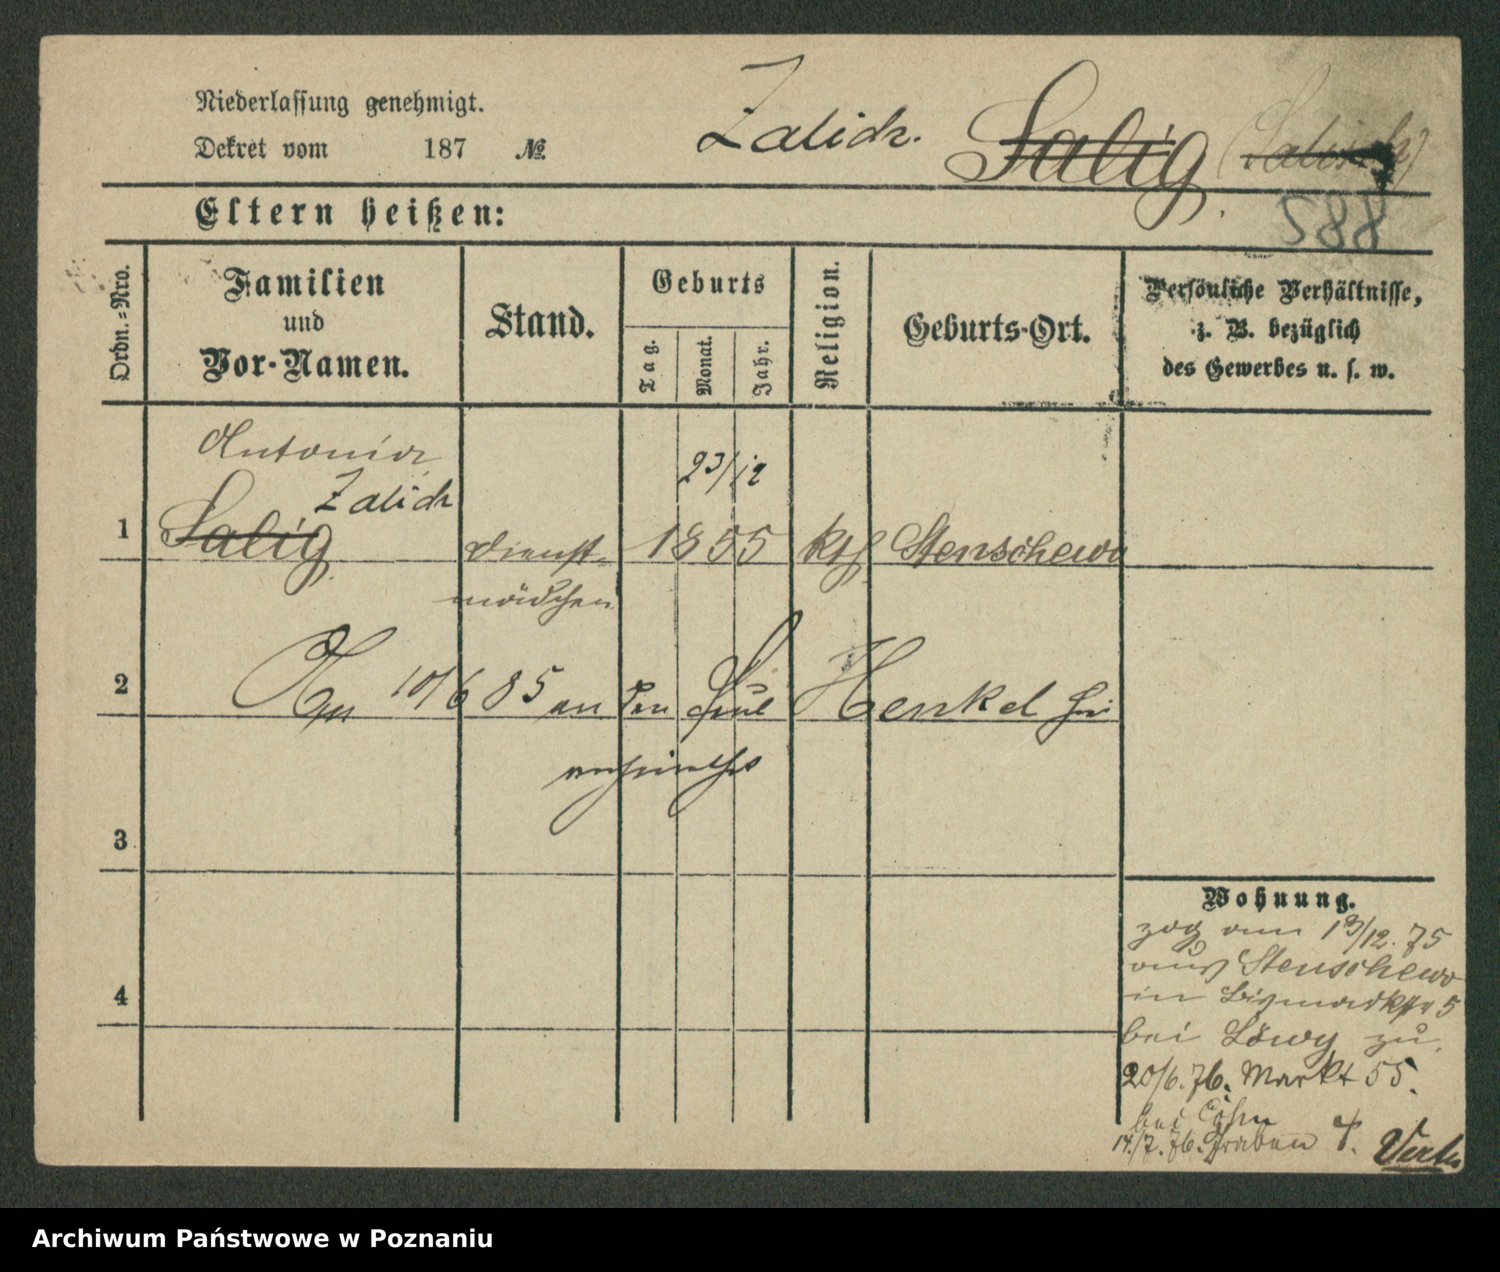 Niederlassung genehmigt.
Dekret vom 187 №
Zalich. Salig (Salisch)
588
Eltern heißen:
Ordn.=Nro.
Familien
und
Vor-Namen.
Stand.
Geburts
Tag.
Monat.
Jahr.
Religion.
Geburts-Ort.
Persönliche Verhältnisse,
z. B. bezüglich
des Gewerbes u. s. w.
Antonia
Zalich
23/12
1 Salig Dienst- 1855 kth Stenschewo
mädchen
2 10/6 85 an den Henkel
3
Wohnung.
zog am 13/12. 75
aus Stenschewo
4 in Bismarckstr 5
bei Löwy zu.
20/6. 76. Markt 55.
bei Cohn
14./7. 76. Graben 4.